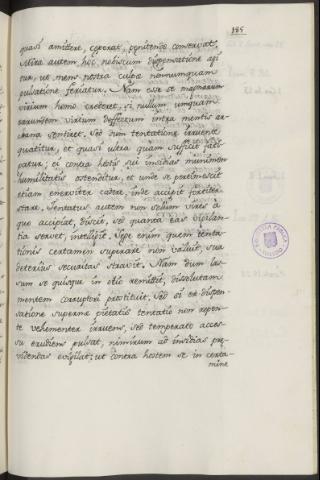 185
quasi amittere, ceperat, penitendo conservat.
Mira autem hoc nobiscum dispensatione agi
tur, ut mens nostra culpæ nonnunquam
pulsatione feriatur. Nam esse se magnarum
virium homo crederet, si nullum unquam
earumdem virium deffectum intra mentis ar-
chana sentiret. Sed dum tentatione irruente
quatitur, et quasi ultra quam sufficit fati-
gatur; ei contra hostis sui insidias munimen
humilitatis ostenditur, et unde se pertimescit
etiam enerviter cadere, inde accipit fortiter
stare. Tentatus autem non solum vires à
quo accipiat, discit, sed quanta eas vigilan-
tia servet, intelligit. Sæpe enim quem tenta-
tionis certamen superare non valuit, sua
deterius securitas stravit. Nam dum las-
sum se quisque in otio remittit, dissolutam
mentem corruptori prostituit. Sed si ex dispen-
satione supernæ pietatis tentatio non repen-
te vehementer irruens, sed temperato acces-
su erudiens pulsat, nimirum ad insidias præ-
videndas evigilat; ut contra hostem se in certa-
mine